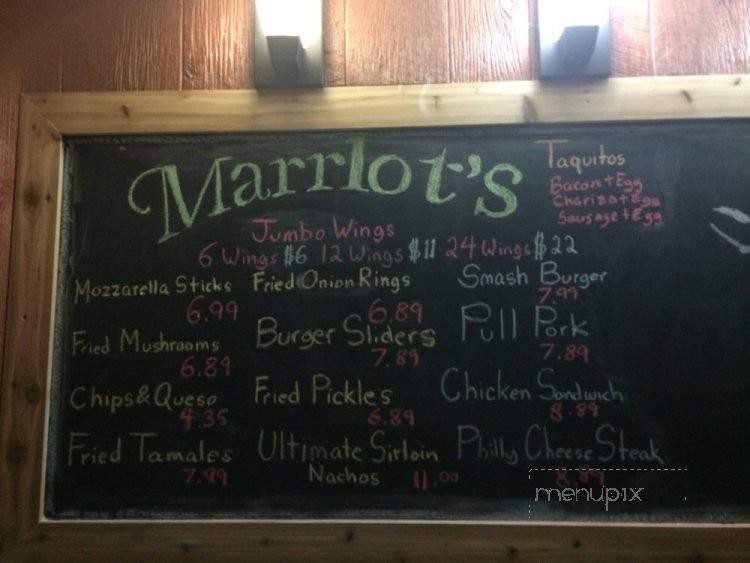 Marrlot's
Taquitos
Bacon + Egg
Charizo + Egg
Sausage + Egg
Jumbo Wings
6 Wings $6 12 Wings $11 24 Wings $22
Mozzarella Sticks
6.99
Fried Mushrooms
6.89
Chips & Queso
4.35
Fried Tamales
7.99
Fried Onion Rings
6.89
Burger Sliders
7.89
Fried Pickles
6.89
Ultimate Sirloin
Nachos 11.00
Smash Burger
7.99
Pull Pork
7.89
Chicken Sandwich
8.89
Philly Cheese Steak
8.89
menupix